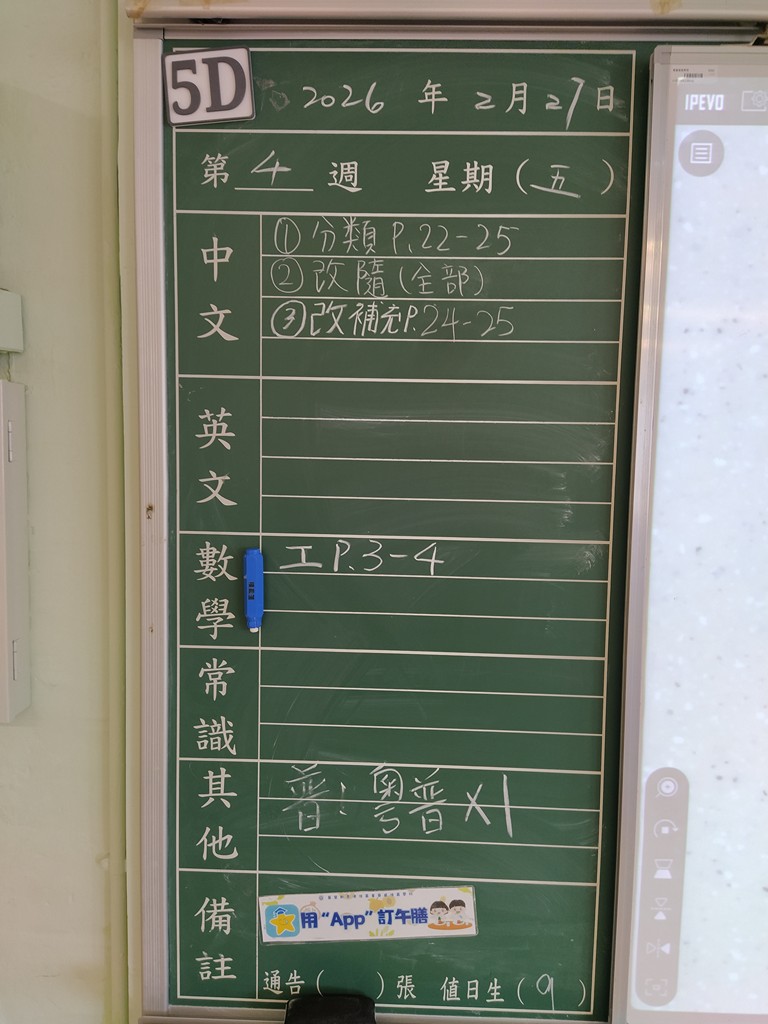 5D
2026 年 2月27日
第 4 週 星期(五)
中文
①分類 P.22-25
②改隨(全部)
③改補充P.24-25
英文
數學
工P.3-4
常識
其他
普：粵普x1
備註
用“App”訂午膳
通告( )張 值日生(9)
IPEVO